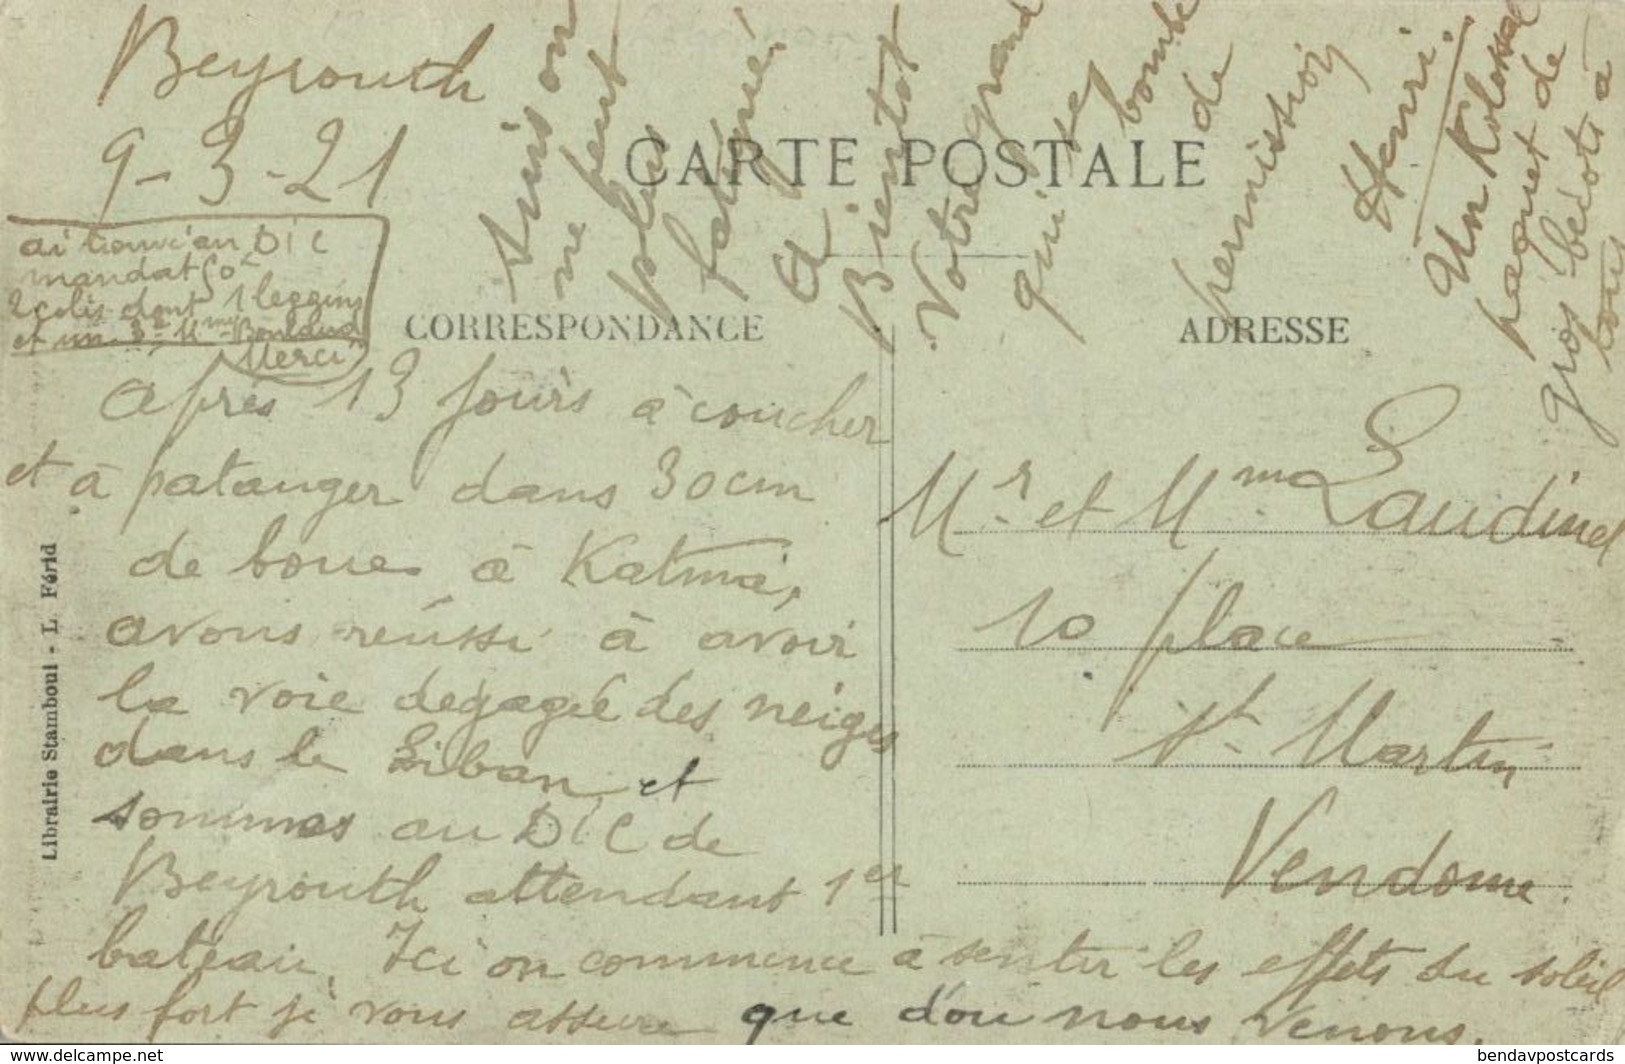 Beyrouth
9-3-21
ai trouvé au DIC
mandat 50
2 colis dont 1 leggins
et un 3e Mme Boulaud
Merci
CARTE POSTALE
CORRESPONDANCE
ADRESSE
après 13 jours à coucher
et à patauger dans 30 cm
de boue à Katma,
avons réussi à avoir
la voie dégagée des neiges
dans le Liban et
sommes au DIC de
Beyrouth attendant 1er
bateau. Ici on commence à sentir les effets du soleil
plus fort je vous assure que d'où nous venons.
Suis on
ne peut
plus
fatigué
A
Bientôt
Votre grand
qui se
bombe
de
permission
Henri.
Un Kolossal
paquet de
gros bécots à
tous
Mr et Mme Laudinel
10 place
St Martin
Vendome
Librairie Stamboul - L. Férid
www.delcampe.net
bendavpostcards